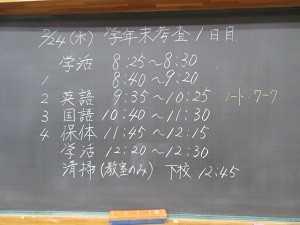 2/24(木) 学年末考査1日目
学活 8:25~8:30
1 8:40~9:20
2 英語 9:35~10:25 ノート・ワーク
3 国語 10:40~11:30
4 保体 11:45~12:15
学活 12:20~12:30
清掃(教室のみ) 下校 12:45